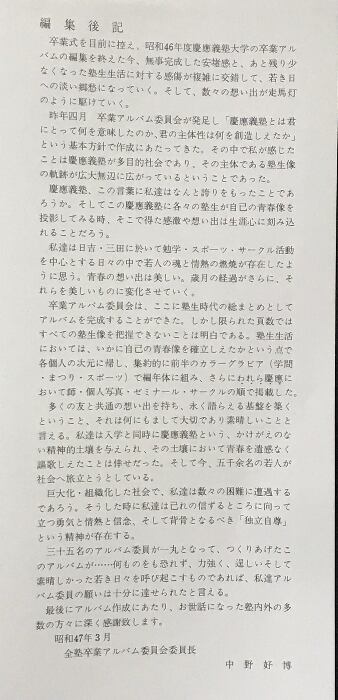 編集後記
卒業式を目前に控え、昭和46年度慶應義塾大学の卒業アル
バムの編集を終えた今、無事完成した安堵感と、あと残り少
なくなった塾生生活に対する感傷が複雑に交錯して、若き日
への淡い郷愁になっていく。そして、数々の想い出が走馬灯
のように駆けていく。
昨年四月　卒業アルバム委員会が発足し「慶應義塾大学とは君
にとって何を意味したのか、君の主体性は何を創造しえたか」
という基本方針で作成にあたってきた。その中で私が感じた
ことは慶應義塾が多目的社会であり、その主体である塾生像
の軌跡が広大無辺に広がっているということであった。
慶應義塾、この言葉に私達はなんと誇りをもったことであ
ろうか。そしてこの慶應義塾に各々の塾生が自己の青春像を
投影してみる時、そこで得た感激や想い出は生涯心に刻み込
れることだろう。
私達は日吉・三田に於いて勉学・スポーツ・サークル活動
を中心とする日々の中で若人の魂と情熱の燃焼が存在したよ
うに思う。青春の想い出は美しい。歳月の経過がさらに、そ
れらを美しいものに変化させていく。
卒業アルバム委員会は、ここに塾生時代の総まとめとして
アルバムを完成することができた。しかし限られた頁数では
すべての塾生像を把握できないことは明白である。塾生生活
においては、いかに自己の青春像を確立しえたかという点で
各個人の次元に帰し、集約的に前半のカラーグラビア（学問
・まつり・スポーツ）で編年体に組み、さらにわれら慶應に
おいて師・個人写真・ゼミナール・サークルの順で掲載した。
多くの友と共通の想い出を持ち、永く語らえる基盤を築く
ということ、それは何にもまして大切であり素晴しいことと
言える。私達は入学と同時に慶應義塾という、かけがえのな
い精神的土壌を与えられ、その土壌において青春を遺感なく
謳歌しえたことは倖せだった。そして今、五千余名の若人が
社会へ旅立とうとしている。
巨大化・組織化した社会で、私達は数々の困難に遭遇する
であろう。そうした時に私達は己れの信ずるところに向って
立つ勇気と情熱と信念、そして背骨となるべき「独立自尊」
という精神が存する。
三十五名のアルバム委員が一丸となって、つくりあげたこ
のアルバムが……何ものをも恐れず、力強く、逞しいそして
素晴しかった若き日々を呼び起こすものであれば、私達アル
バム委員の願いは十分に達せられたと言える。
最後にアルバム作成にあたり、お世話になった塾内外の多
数の方々に深く感謝致します。
昭和47年3月
全塾卒業アルバム委員会委員長
中野好博